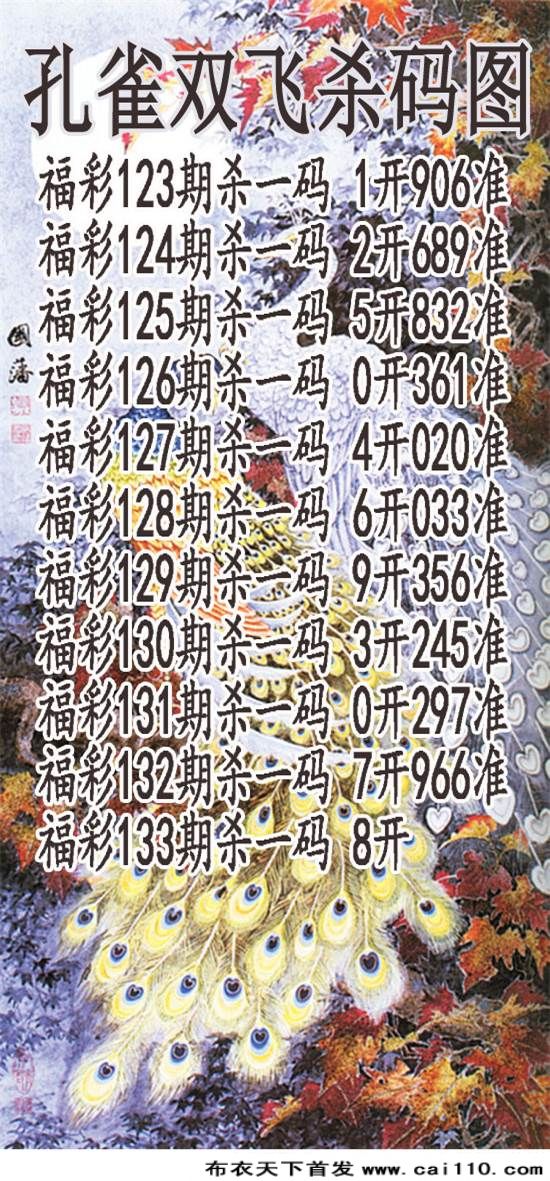 孔雀双飞杀码图
福彩123期杀一码 1开906准
福彩124期杀一码 2开689准
福彩125期杀一码 5开832准
福彩126期杀一码 0开361准
福彩127期杀一码 4开020准
福彩128期杀一码 6开033准
福彩129期杀一码 9开356准
福彩130期杀一码 3开245准
福彩131期杀一码 0开297准
福彩132期杀一码 7开966准
福彩133期杀一码 8开
國藩
布衣天下首发 www.cai110.com